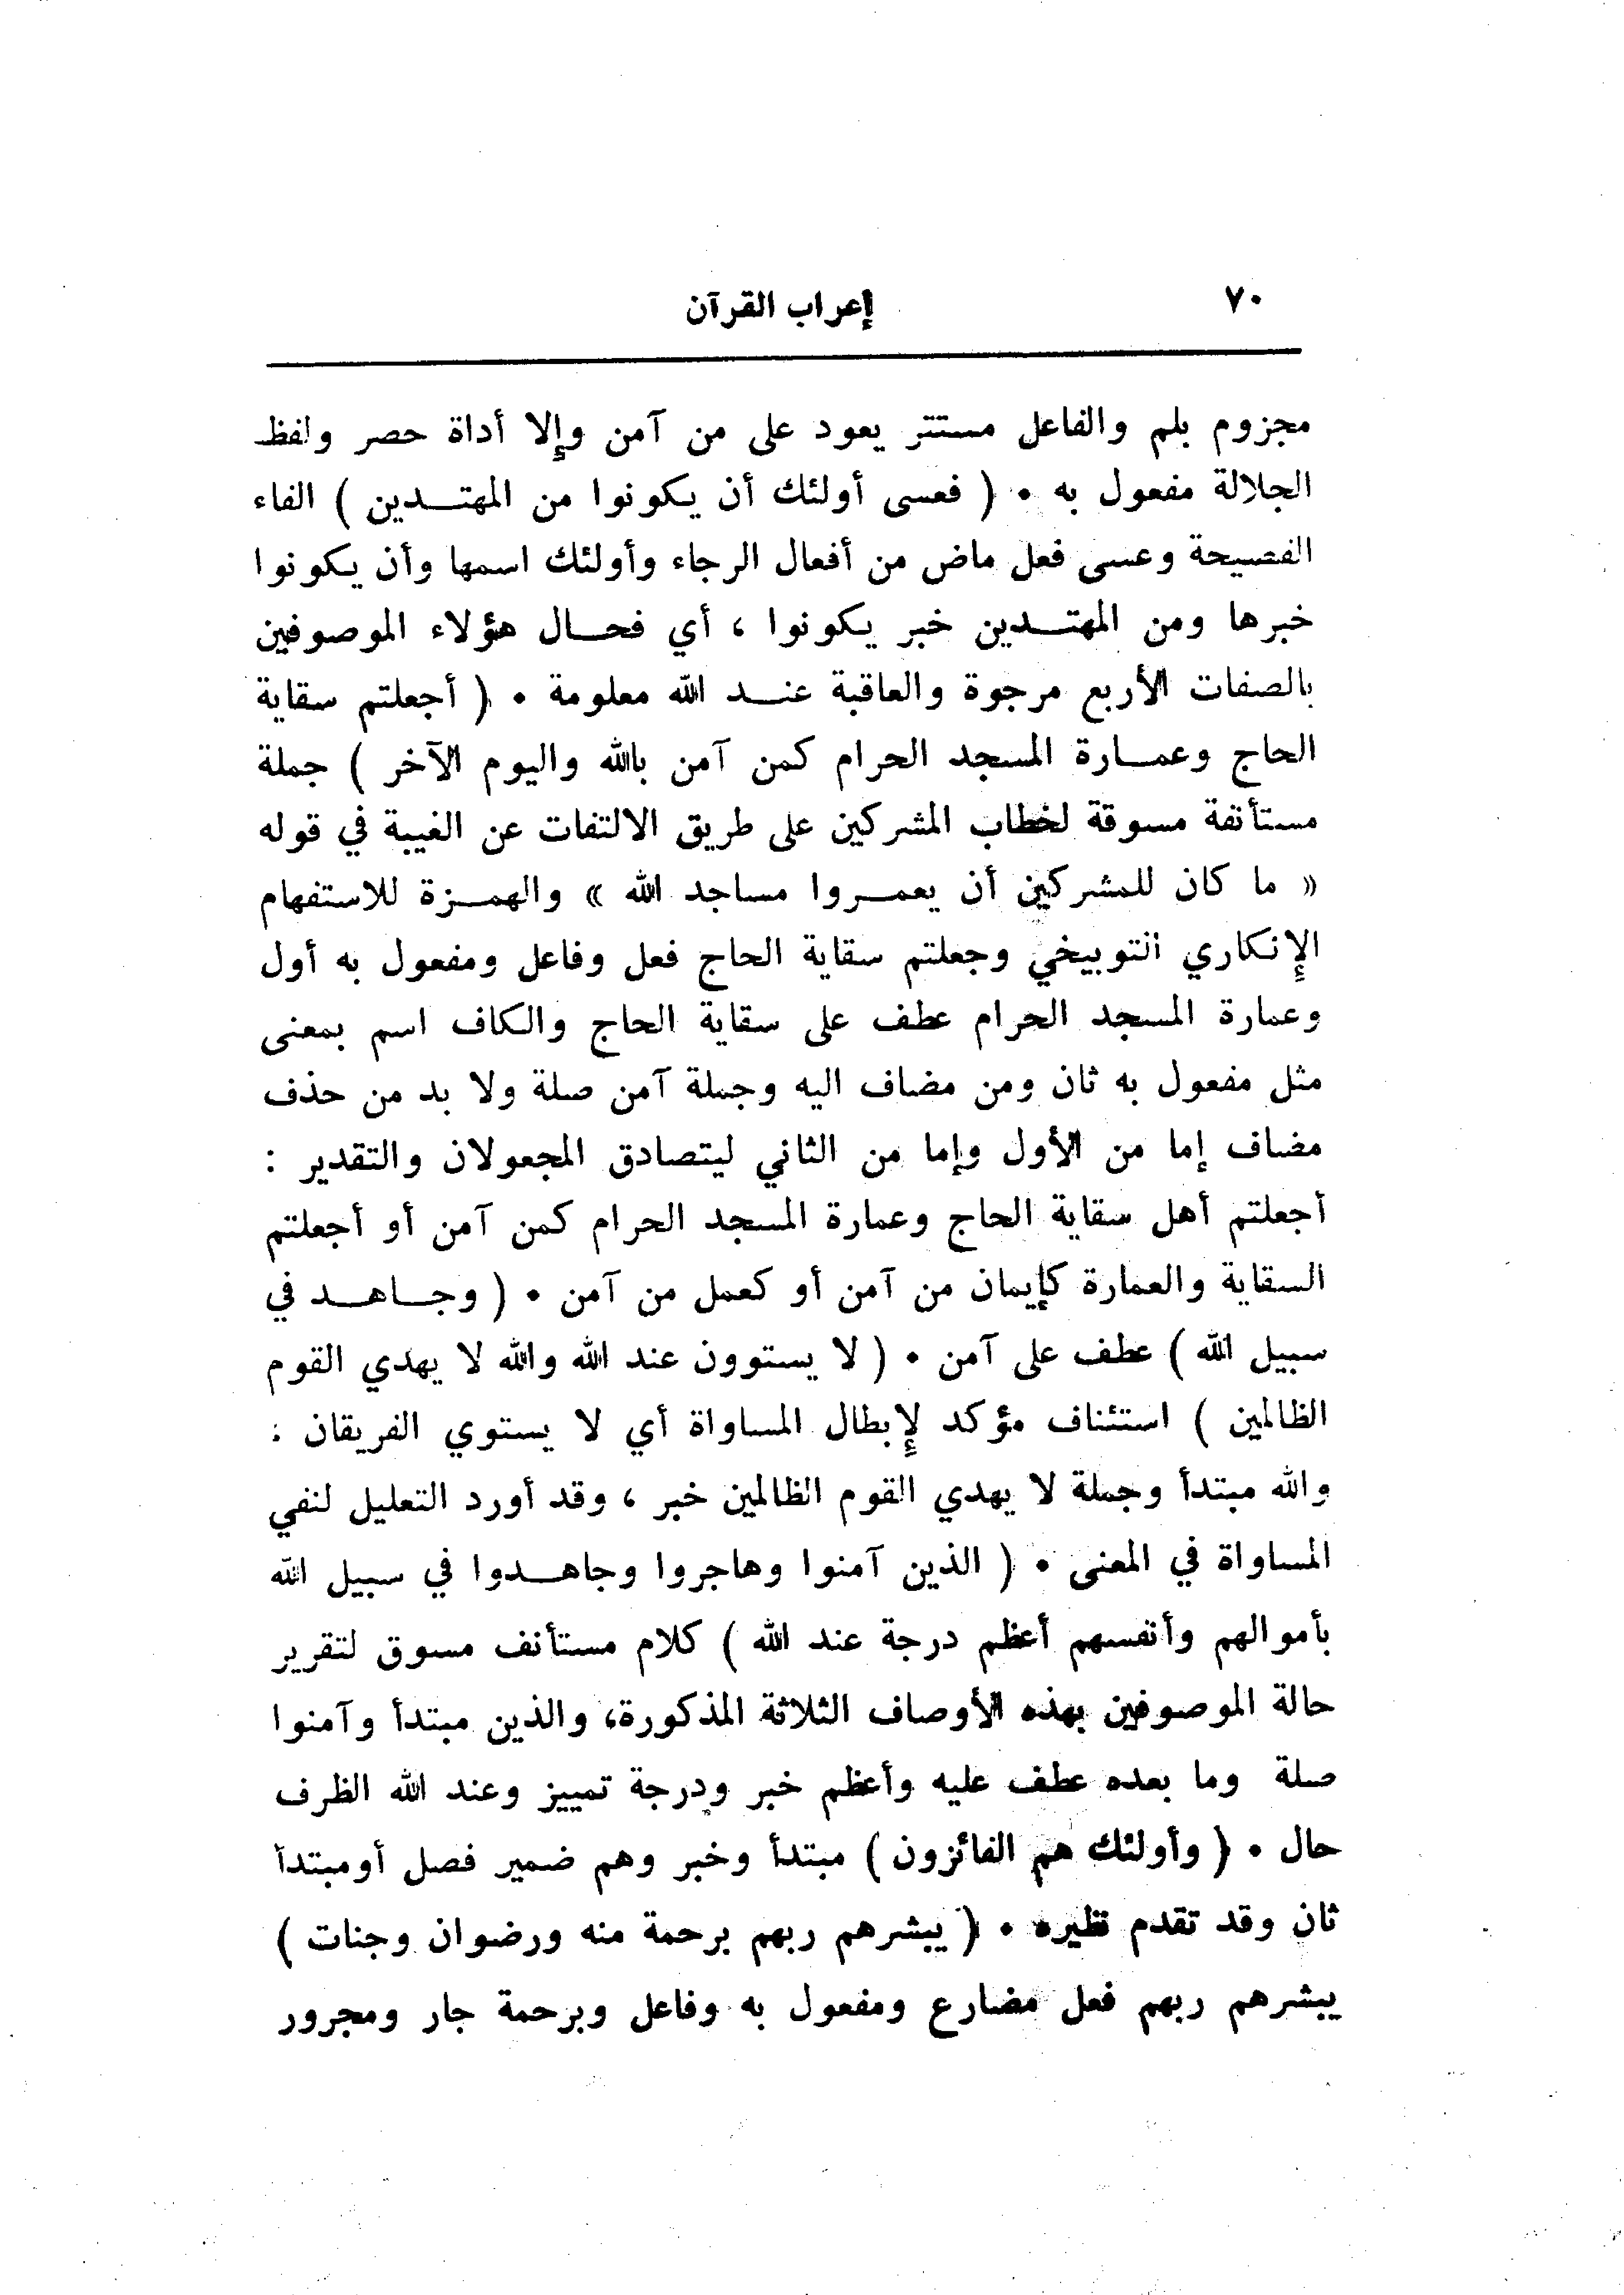 ٧٠
إعراب القرآن
مجزوم بلم والفاعل مستتر يعود على من آمن وإلا أداة حصر ولفظ
الجلالة مفعول به ٠ ( فعسى أولئك أن يكونوا من المهتدين ) الفاء
الفصيحة وعسى فعل ماض من أفعال الرجاء وأولئك اسمها وأن يكونوا
خبرها ومن المهتدين خبر يكونوا ، أي فحال هؤلاء الموصوفين
بالصفات الأربع مرجوة والعاقبة عند الله معلومة ٠ ( أجعلتم سقاية
الحاج وعمارة المسجد الحرام كمن آمن بالله واليوم الآخر ) جملة
مستأنفة مسوقة لخطاب المشركين على طريق الالتفات عن الغيبة في قوله
« ما كان للمشركين أن يعمروا مساجد الله » والهمزة للاستفهام
الإنكاري التوبيخي وجعلتم سقاية الحاج فعل وفاعل ومفعول به أول
وعمارة المسجد الحرام عطف على سقاية الحاج والكاف اسم بمعنى
مثل مفعول به ثان ومن مضاف اليه وجملة آمن صلة ولا بد من حذف
مضاف إما من الأول وإما من الثاني ليتصادق المجعولان والتقدير :
أجعلتم أهل سقاية الحاج وعمارة المسجد الحرام كمن آمن أو أجعلتم
السقاية والعمارة كإيمان من آمن أو كعمل من آمن ٠ ( وجاهد في
سبيل الله ) عطف على آمن ٠ ( لا يستوون عند الله والله لا يهدي القوم
الظالمين ) استئناف مؤكد لإبطال المساواة أي لا يستوي الفريقان :
والله مبتدأ وجملة لا يهدي القوم الظالمين خبر ، وقد أورد التعليل لنفي
المساواة في المعنى ٠ ( الذين آمنوا وهاجروا وجاهدوا في سبيل الله
بأموالهم وأنفسهم أعظم درجة عند الله ) كلام مستأنف مسوق لتقرير
حالة الموصوفين بهذه الأوصاف الثلاثة المذكورة، والذين مبتدأ وآمنوا
صلة وما بعده عطف عليه وأعظم خبر ودرجة تمييز وعند الله الظرف
حال ٠ ( وأولئك هم الفائزون ) مبتدأ وخبر وهم ضمير فصل أومبتدأ
ثان وقد تقدم نظيره ٠ ( يبشرهم ربهم برحمة منه ورضوان وجنات )
يبشرهم ربهم فعل مضارع ومفعول به وفاعل وبرحمة جار ومجرور